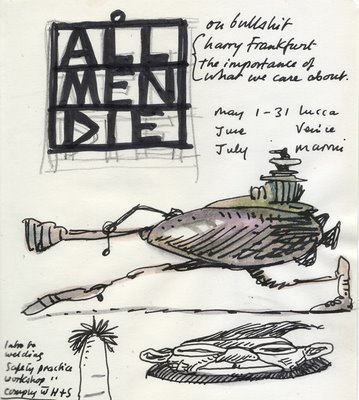 ALL
MEN
DIE
on bullshit
Harry Frankfurt
the importance of
what we care about.
may 1-31 Lucca
June Venice
July
Intro to
welding
Safety practice
workshop "
comply w̄ H+S